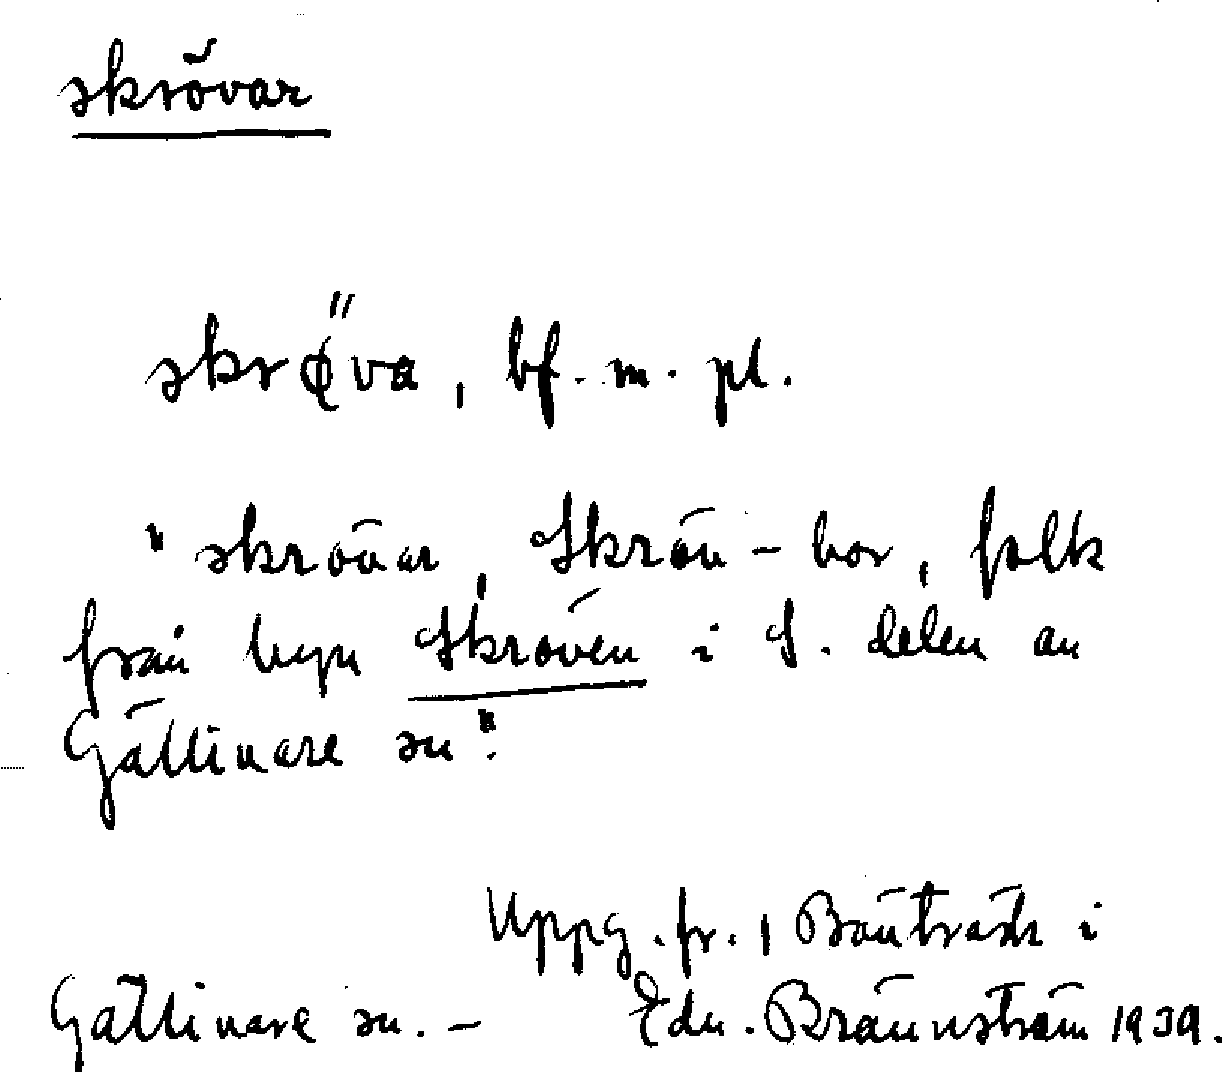 skrövar
skrø̈va, bf. m. pl.
"skrövar, Skröv-bor, folk
från byn Skröven i S. delen av
Gällivare sn".
Uppg. fr. Bönträsk i
Gällivare sn. - Edv. Brännström 1939.